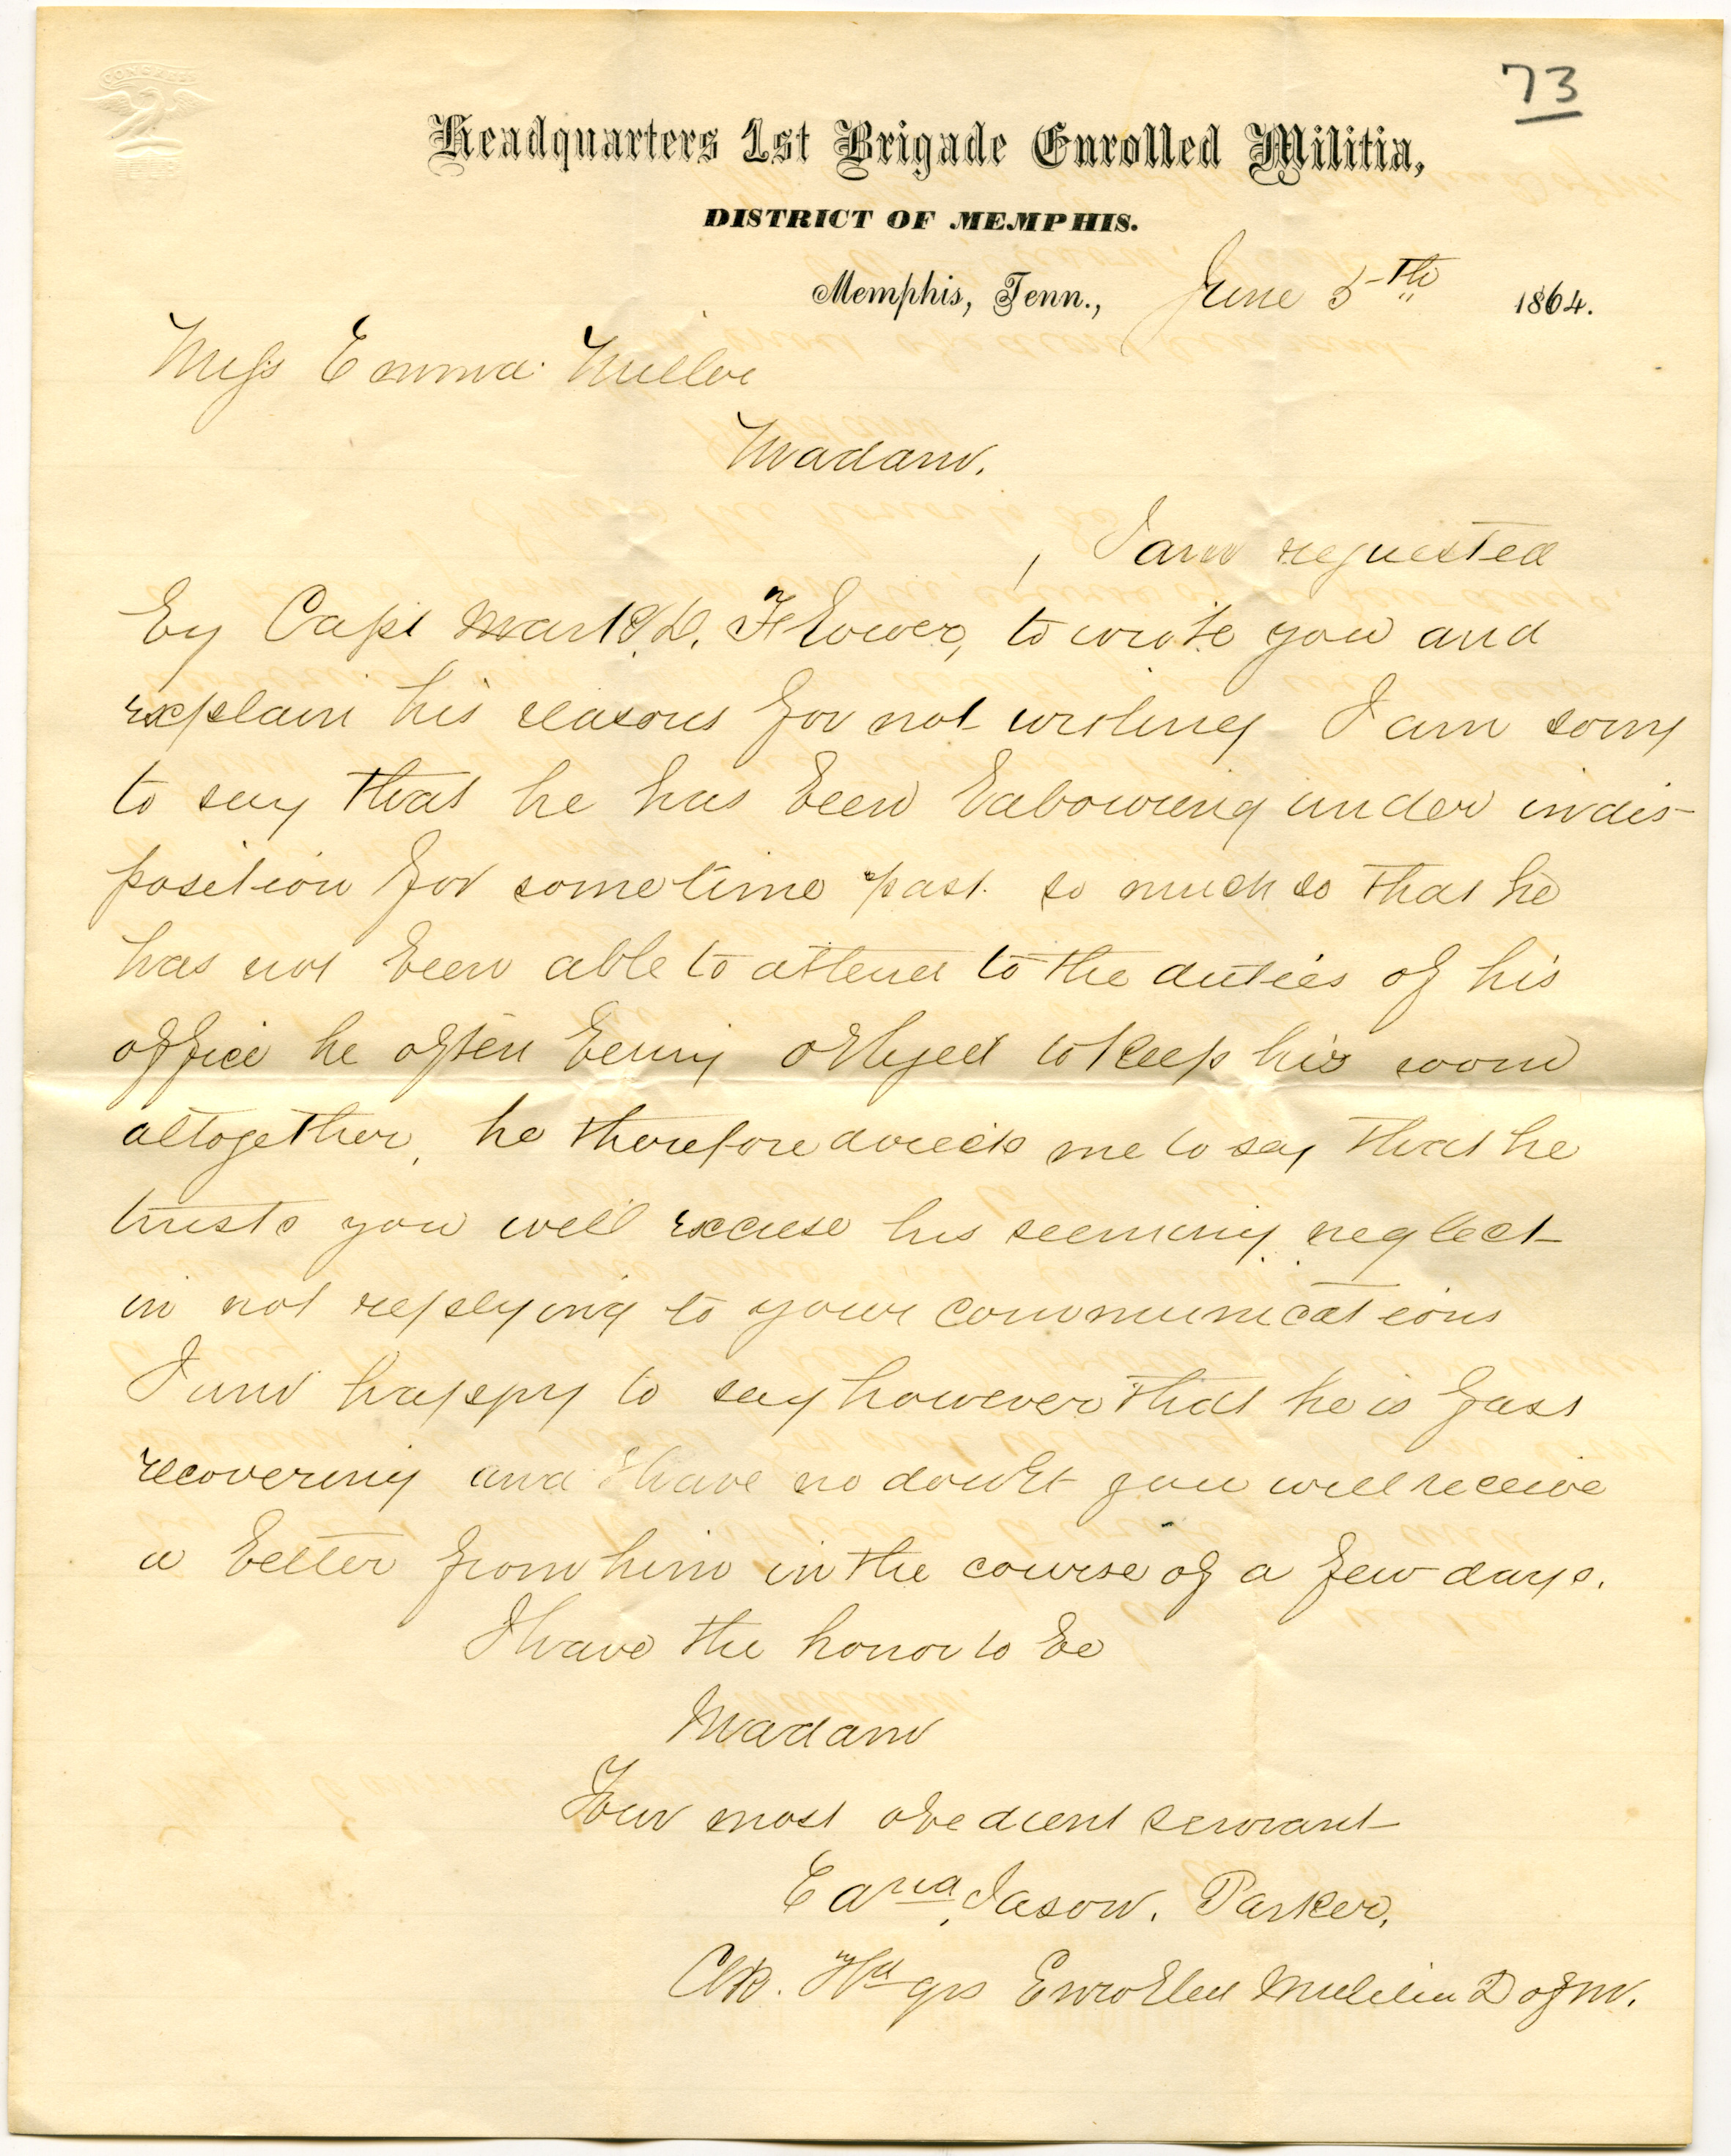 CONGRESS
73
Headquarters 1st Brigade Enrolled Militia,
DISTRICT OF MEMPHIS.
Memphis, Tenn., June 5th 1864.
Miss Emma Miller
Madam.
, I am requested
by Capt Mark D. Flower, to write you and
explain his reasons for not writing I am sorry
to say that he has been labouring under indis-
position for some time past. so much so that he
has not been able to attend to the duties of his
office he often being obliged to keep his room
altogether, he therefore directs me to say that he
trusts you will excuse his seeming neglect
in not replying to your communications
I am happy to say however that he is fast
recovering and I have no doubt you will receive
a letter from him in the course of a few days.
I have the honor to be
Madam
Your most obedient servant
Jason. Parker,
Clk. Hd qrs Enrolled Militia D of M.